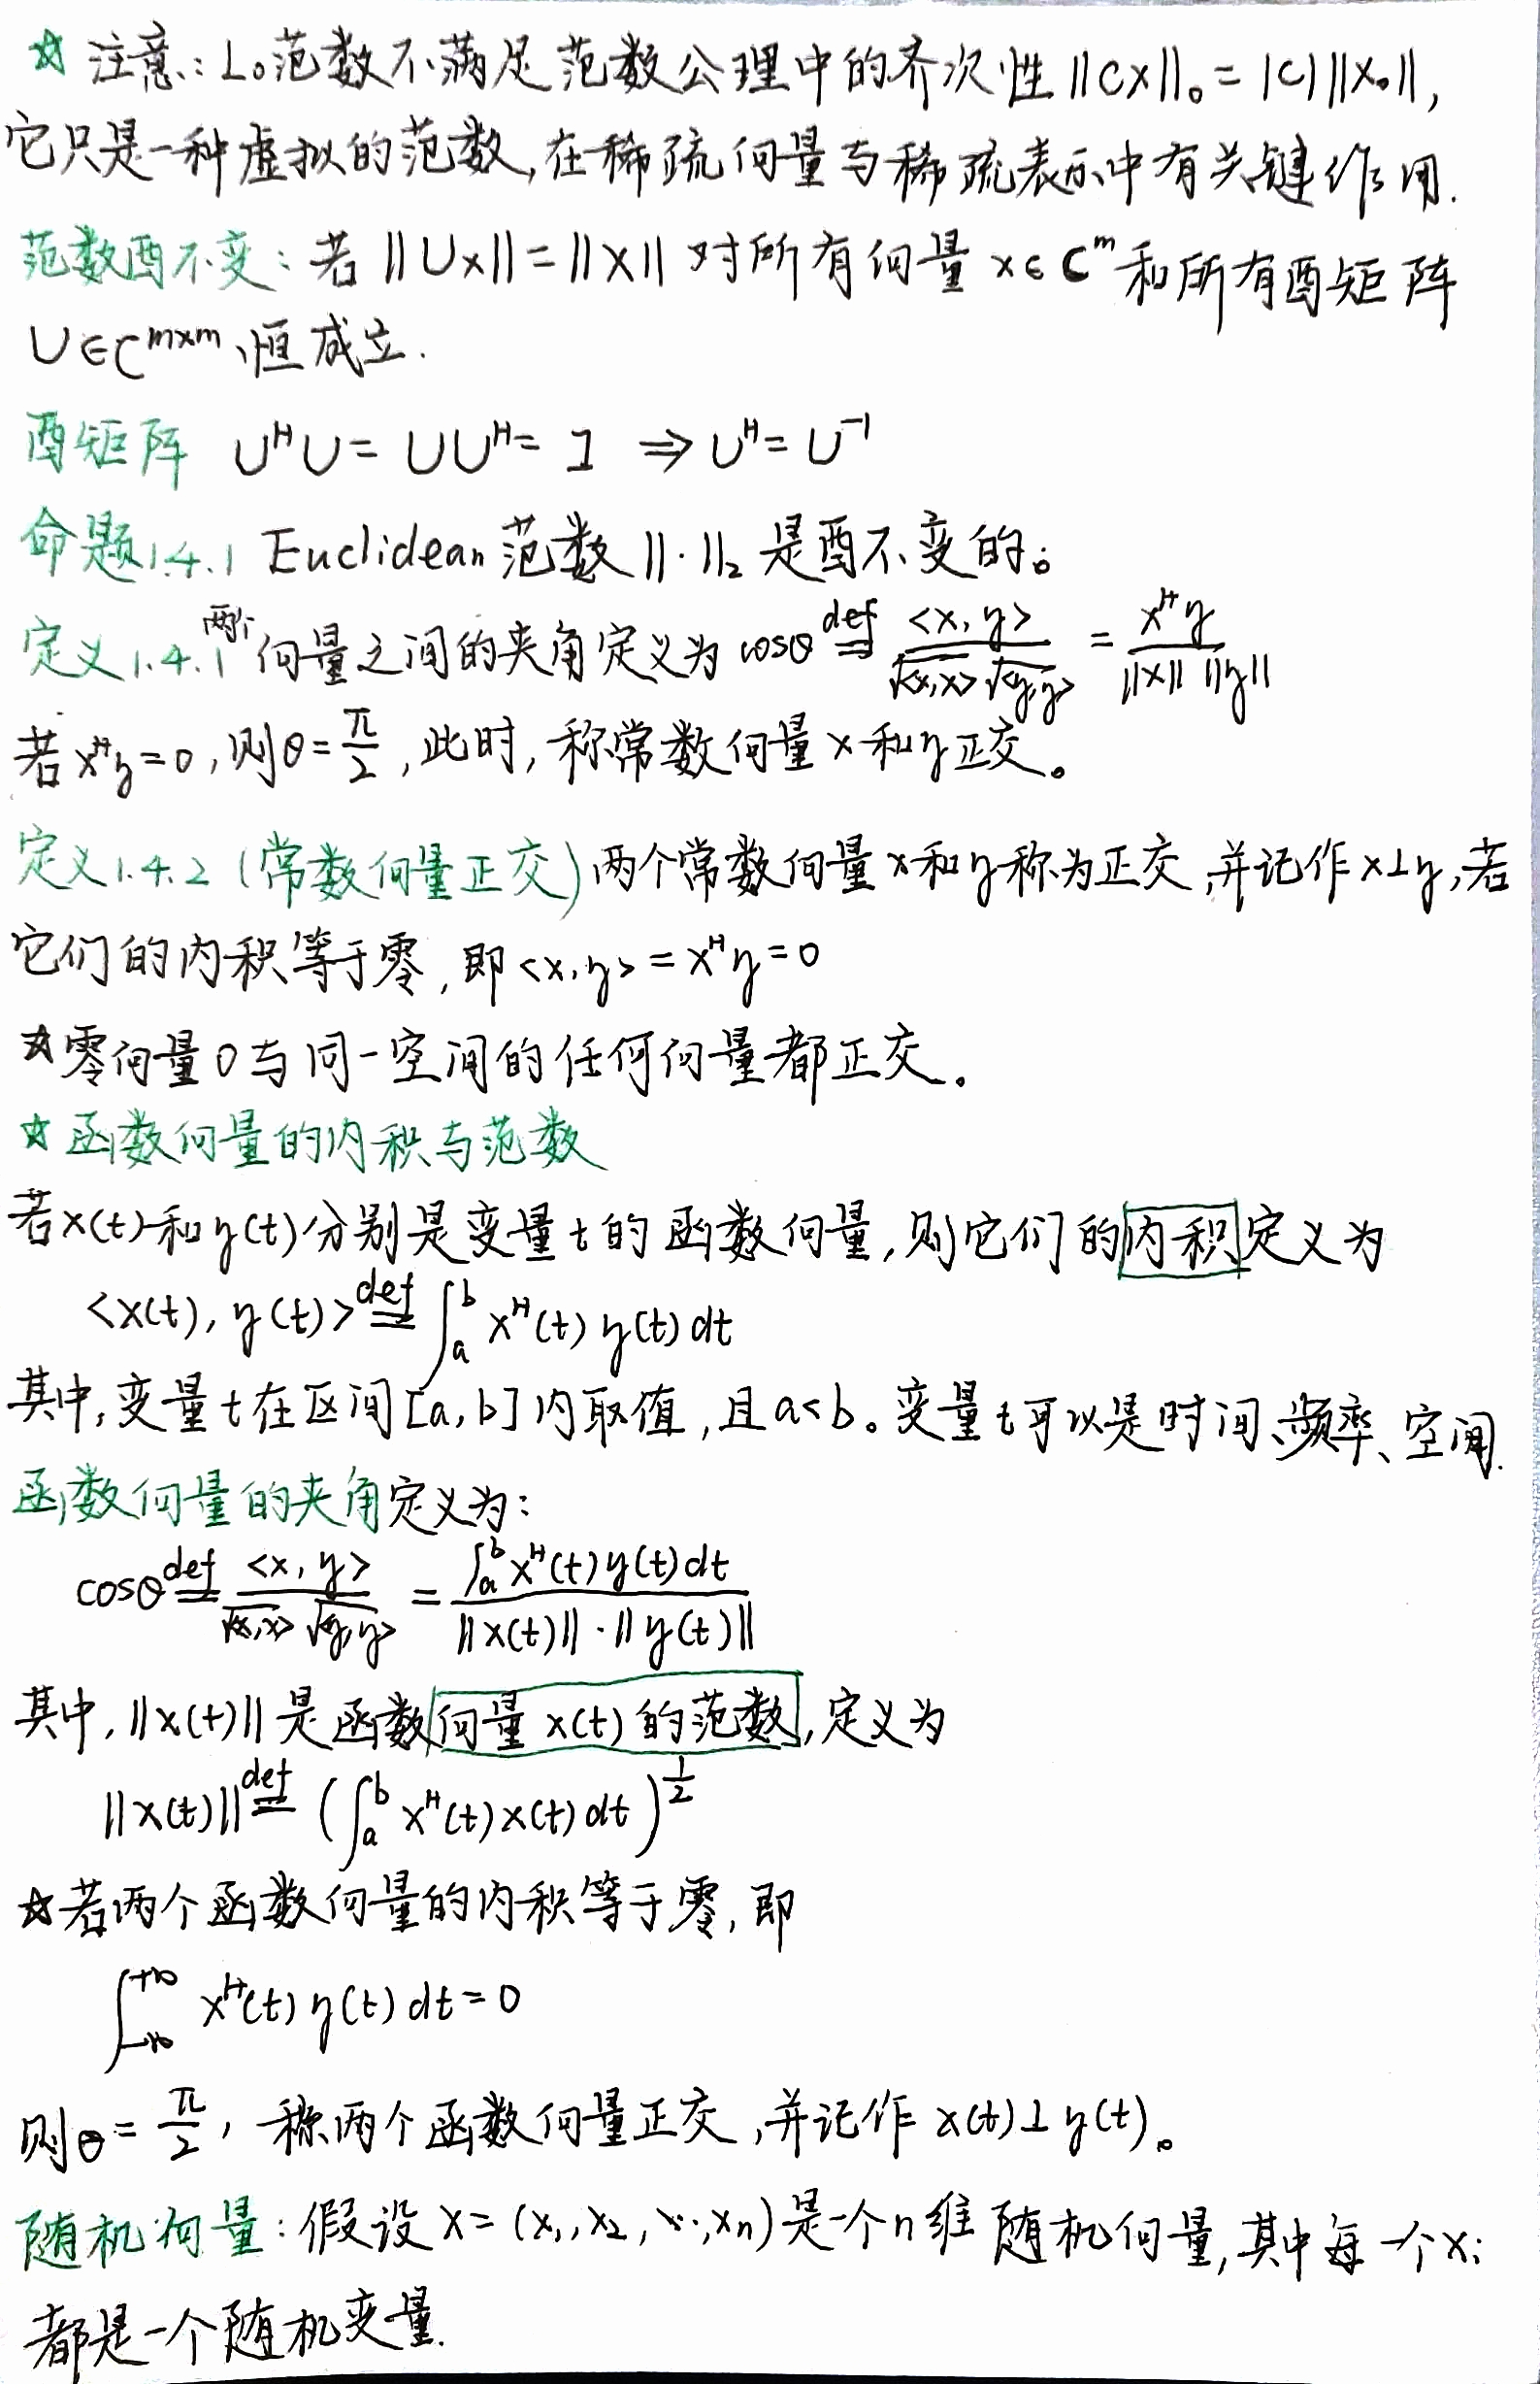 ☆ 注意：L₀范数不满足范数公理中的齐次性 ||cx||₀ = |c| ||x₀||,
它只是一种虚拟的范数,在稀疏向量与稀疏表示中有关键作用.
范数酉不变：若 ||Ux|| = ||x|| 对所有向量 x∈Cᵐ 和所有酉矩阵
U∈Cᵐˣᵐ 恒成立.
酉矩阵 UᴴU = UUᴴ = I ⇒ Uᴴ = U⁻¹
命题1.4.1 Euclidean 范数 ||·||₂ 是酉不变的。
定义1.4.1 两个向量之间的夹角定义为 cosθ def= <x, y> / (√<x,x> √<y,y>) = xᴴy / (||x|| ||y||)
若 xᴴy = 0, 则 θ = π/2, 此时, 称常数向量 x 和 y 正交。
定义1.4.2 (常数向量正交) 两个常数向量 x 和 y 称为正交,并记作 x⊥y,若
它们的内积等于零, 即 <x, y> = xᴴy = 0
☆零向量 0 与同一空间的任何向量都正交。
☆ 函数向量的内积与范数
若 x(t) 和 y(t) 分别是变量 t 的函数向量, 则它们的内积定义为
<x(t), y(t)> def= ∫ₐᵇ xᴴ(t) y(t) dt
其中, 变量 t 在区间 [a, b] 内取值, 且 a<b。变量 t 可以是时间、频率、空间.
函数向量的夹角定义为：
cosθ def= <x, y> / (√<x,x> √<y,y>) = ∫ₐᵇ xᴴ(t) y(t) dt / (||x(t)||·||y(t)||)
其中, ||x(t)|| 是函数向量 x(t) 的范数, 定义为
||x(t)|| def= (∫ₐᵇ xᴴ(t) x(t) dt)^(1/2)
☆若两个函数向量的内积等于零, 即
∫₋∞⁺∞ xᴴ(t) y(t) dt = 0
则 θ = π/2, 称两个函数向量正交, 并记作 x(t)⊥y(t)。
随机向量：假设 X = (x₁, x₂, ⋯, xₙ) 是一个 n 维随机向量, 其中每一个 xᵢ
都是一个随机变量.